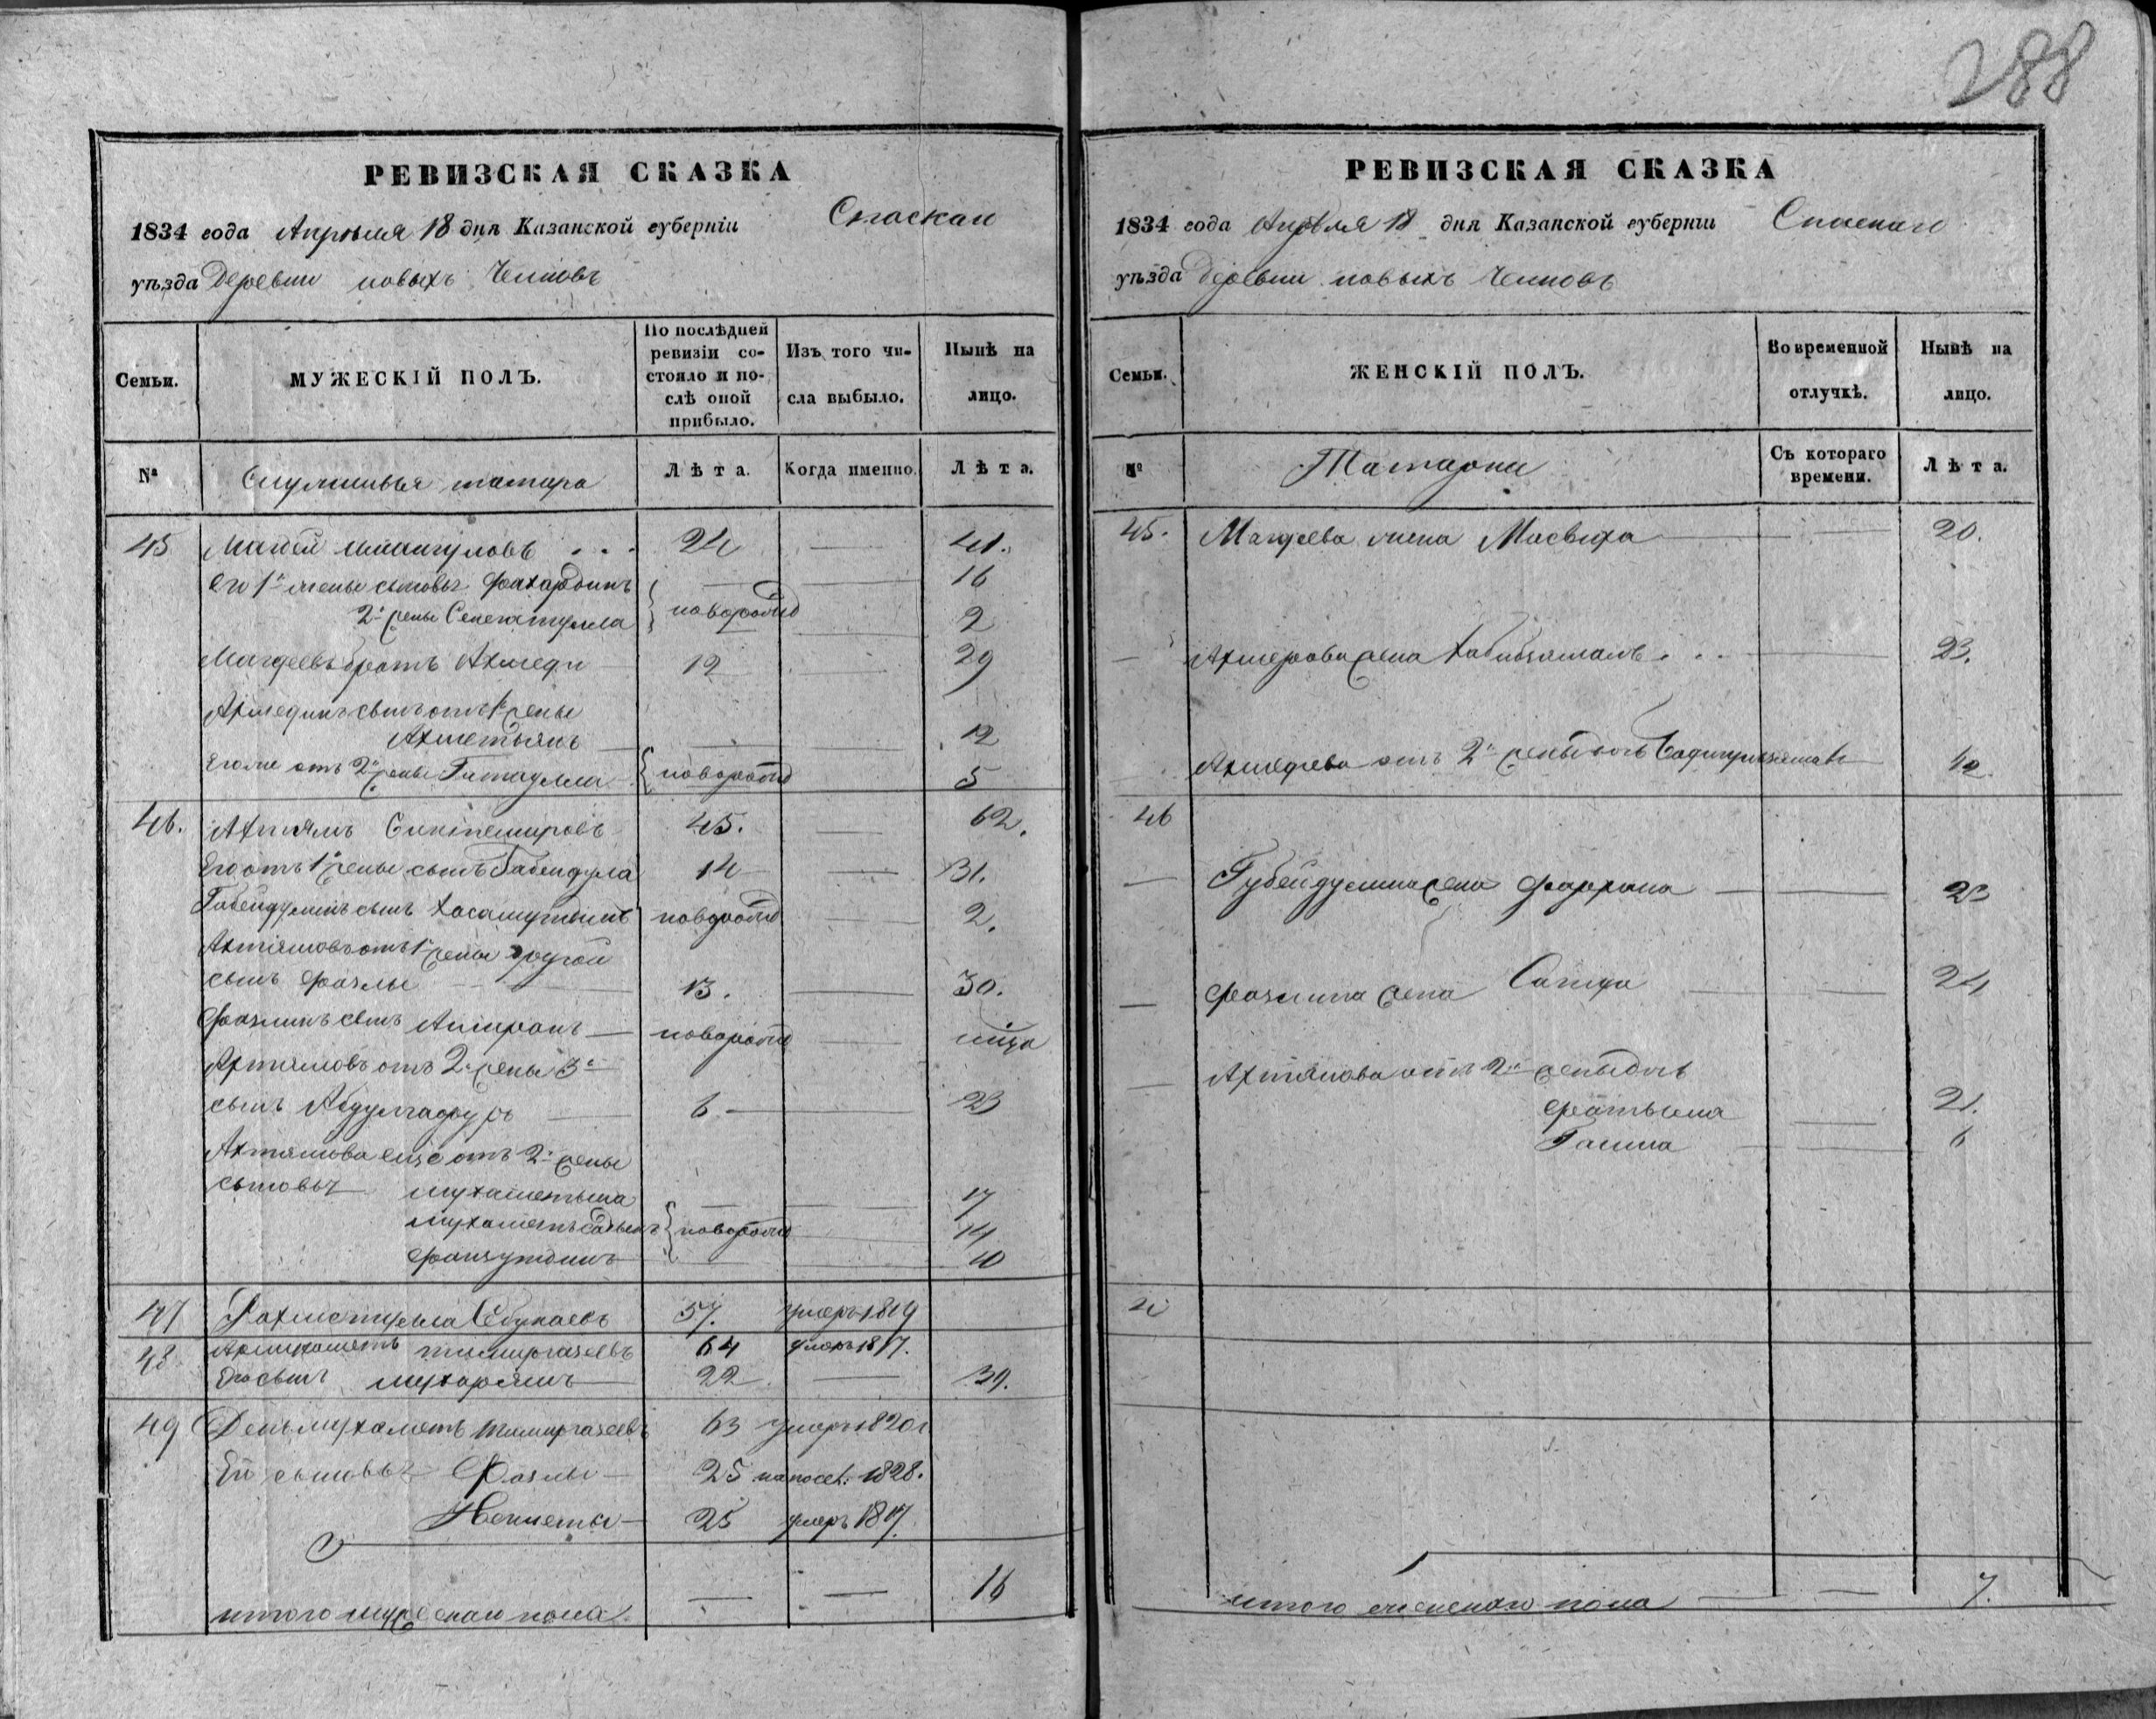 288
РЕВИЗСКАЯ СКАЗКА
1834 года Апреля 18 дня Казанской губерніи Спаскаго
уѣзда Деревни новыхъ Челновъ
Семьи. МУЖЕСКІЙ ПОЛЪ. По послѣдней ревизіи состояло и послѣ оной прибыло. Изъ того числа выбыло. Нынѣ на лицо.
№ Служивыя татара Лѣта. Когда именно. Лѣта.
45 Магдей 24 — 41.
его 1й жены сыновья Фахардинъ — — 16
2й жены новорожд — 2
Магдеевъ братъ Ахмеди 12 — 29
Ахмединъ сынъ отъ 1й жены
Ахметьянъ — — 12
Его же отъ 2й жены Гатаулла новорожд 5
46. Ахтямъ 45. — 62.
Его отъ 1й жены сынъ Габейдула 14 — 31.
Габейдулинъ сынъ Хасамутдинъ новорожд — 2.
Ахтямовъ отъ 1й жены другой
сынъ Фазлы 13. — 30.
Фазлинъ сынъ новорожд —
Ахтямовъ отъ 2й жены 3й
сынъ Абдулгафуръ 6. — 23
Ахтямова еще отъ 2й жены
сыновья Мухаметьша — — 17
Мухаметь новорожд — 14
Фаизутдинъ — — 10
47 Рахметулла 57. умеръ 1819
48 Темиргазеевъ 64 умеръ 1817.
Его сынъ 22 — 39.
49 Деньмухаметь Темиргазеевъ 63 умеръ 1820г
Ег сыновья Фазлы 25 на посел. 1828.
25 умеръ 1817.
итого мужескаго пола — — 16
РЕВИЗСКАЯ СКАЗКА
1834 года Апреля 18 дня Казанской губерніи Спаскаго
уѣзда деревни новыхъ Челновъ
Семьи. ЖЕНСКІЙ ПОЛЪ. Во временной отлучкѣ. Нынѣ на лицо.
№ Татарки Съ котораго времени. Лѣта.
45. Магдеева жена — 20.
— Ахмедова жена Хабибзямалъ — 23.
Ахмедева отъ 2й жены дочь — 12
46
— Губейдуллина жена — 23
— Фазлина жена Сагида — 24
— Ахтямова отъ 2й жены дочь
Фатьма — 21.
Галима — 6
итого женскаго пола — 7.